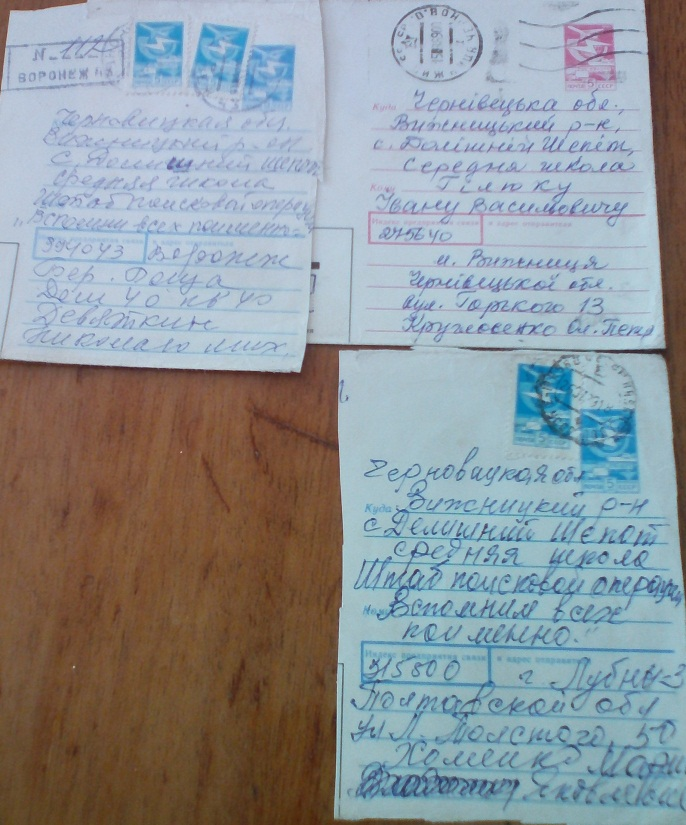 N 1126
ВОРОНЕЖ
Черновицкая обл.
Вижницкий р-он
с. Долишний Шепот
средняя школа
Штаб поисковой операц
"Вспомним всех поименно"
394043 Воронеж
Бер. Роща
Дом 40 кв 40
Девяткин
Николаю мих
5
Куда Чернівецька обл.,
Вижницький р-н,
с. Долішній Шепіт,
середня школа
Кому
Івану Васильовичу
Индекс предприятия связи и адрес отправителя
275640
м. Вижниця
Чернівецької обл.
вул. Горького 13
Черновицкая обл
Куда Вижницкий р-н
с Делишний Шепот
средняя школа
Штаб поисковой операции
Вспомним всех
поименно."
Индекс предприятия связи и адрес отправителя
315500 г. Лубны-3
Полтавской обл
ул Л. Толстого, 50
Хоменко